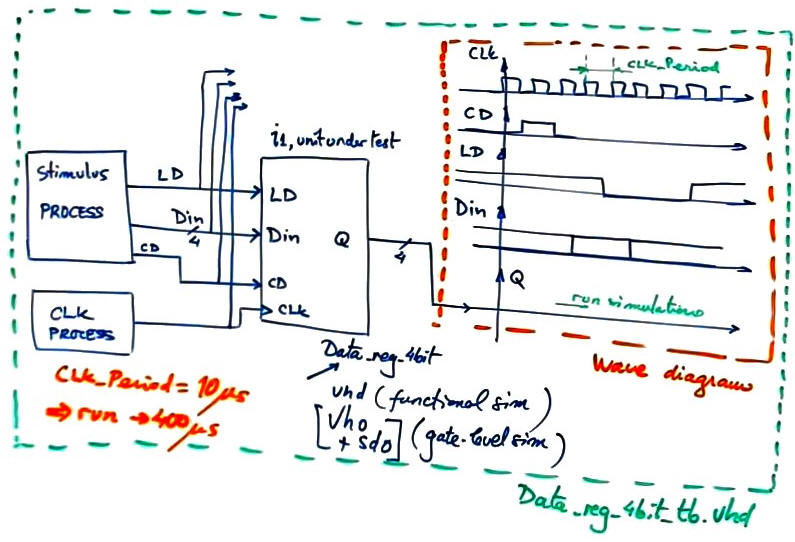 CLK
CLK_Period
CD
LD
Din
Q
run simulations
Wave diagram
i1, unit under test
Stimulus
PROCESS
LD
Din
4
CD
LD
Din
Q
CD
CLK
4
CLK
PROCESS
CLK_Period = 10 µs
⇒ run → 400 µs
Data_reg_4bit
vhd (functional sim)
[vho
+ sdo] (gate-level sim)
Data_reg_4bit_tb.vhd